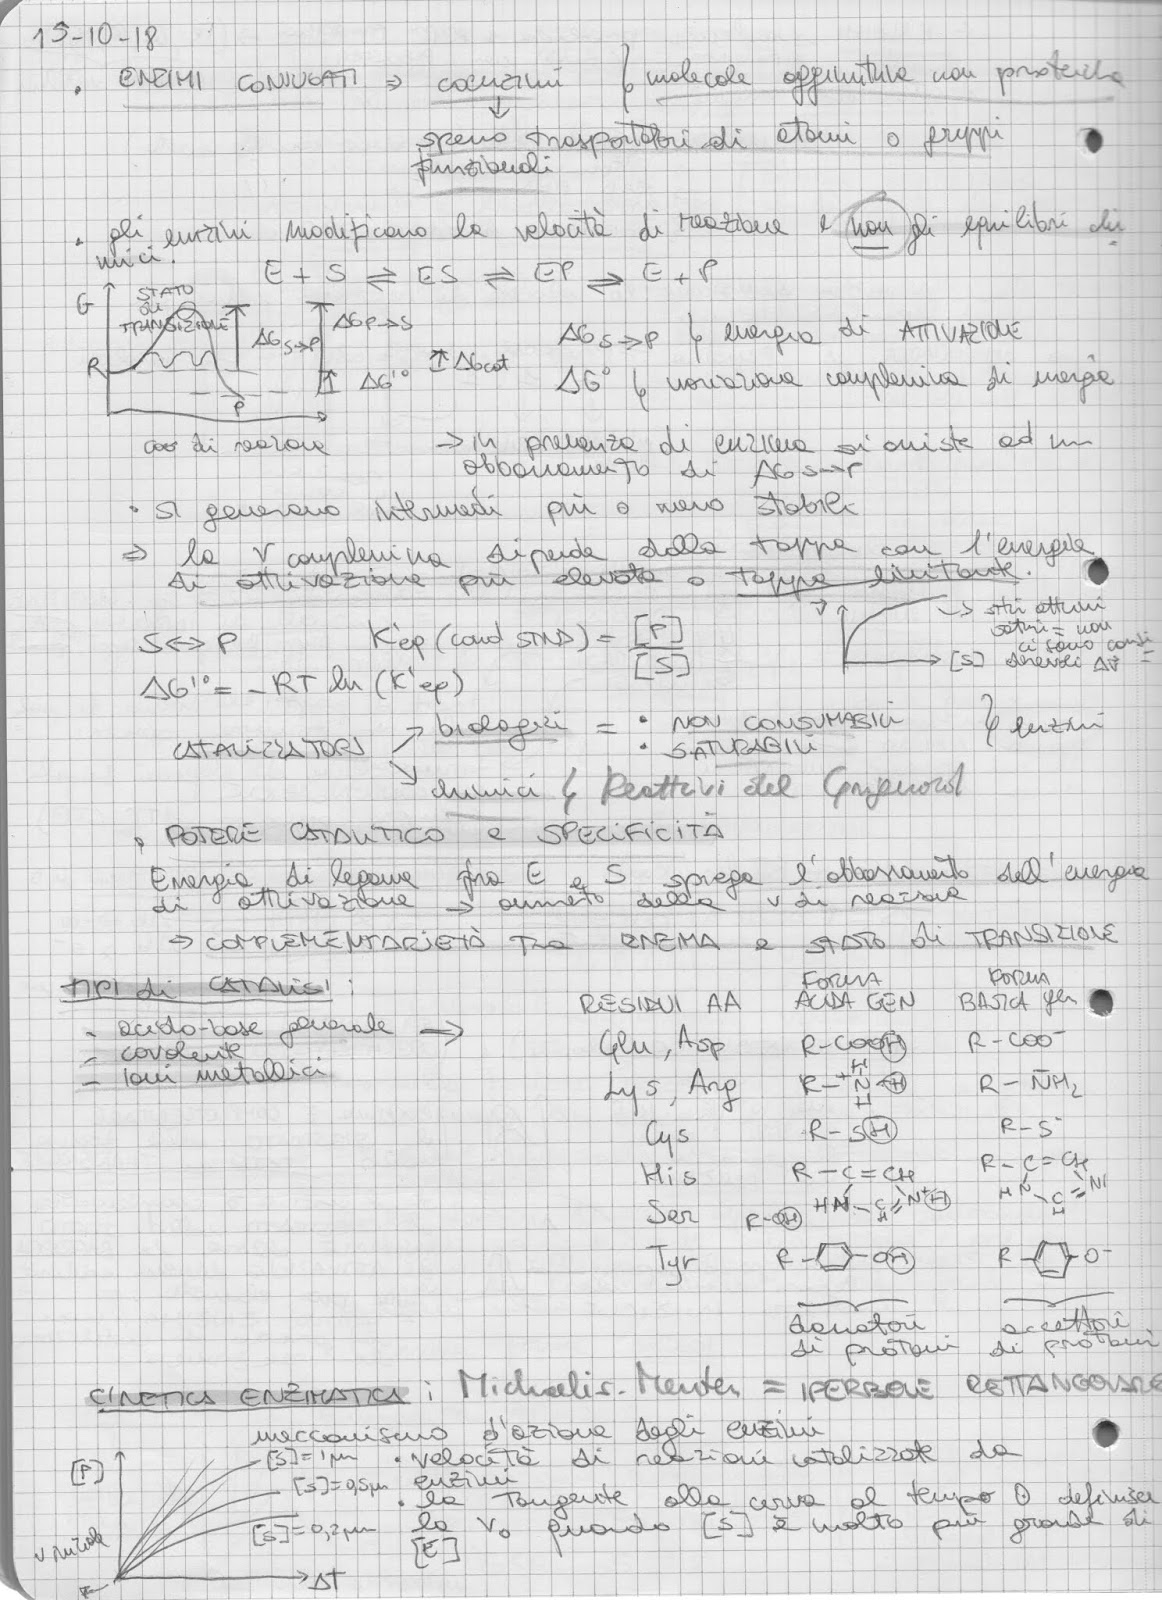 15-10-18
• ENZIMI CONIUGATI → coenzimi ↳ molecole aggiuntive non proteiche
↓
spesso trasportatori di atomi o gruppi
funzionali
• gli enzimi modificano la velocità di reazione e non gli equilibri chi
mici.
E + S ⇌ ES ⇌ EP ⇌ E + P
G
STATO
DI
TRANSIZIONE
R
P
ΔG S→P
ΔG P→S
ΔG'°
ΔGcat
ΔG S→P ↳ energia di ATTIVAZIONE
ΔG° ↳ variazione complessiva di energia
coo di reazione
→ in presenza di enzima si assiste ad un
abbassamento di ΔG S→P
• si generano intermedi più o meno stabili
⇒ la v complessiva dipende dalla tappa con l'energia
di attivazione più elevata o tappa limitante.
S ↔ P K'eq (cond STND) = [P]
[S]
V
[S]
→ siti attivi
saturi = non
ci sono consi
derevoli Δv
ΔG'° = -RT ln (K'eq)
CATALIZZATORI
biologici = • NON CONSUMABILI
• SATURABILI
↳ enzimi
chimici ↳ Reattivi del Grignard
• POTERE CATALITICO e SPECIFICITÀ
Energia di legame fra E e S spiega l'abbassamento dell'energia
di attivazione → aumento della v di reazione
→ COMPLEMENTARIETÀ tra ENZIMA e STATO di TRANSIZIONE
TIPI di CATALISI:
- acido-base generale →
- covalente
- ioni metallici
RESIDUI AA
FORMA
ACIDA GEN
FORMA
BASICA gen
Glu, Asp R-COOH R-COO⁻
Lys, Arg R-⁺N-H R-N̈H₂
H
H
Cys R-SH R-S⁻
His R-C=CH R-C=CH
HN C N⁺-H HN C N
H H
Ser R-OH
Tyr R- -OH R- -O⁻
donatori
di protoni
accettori
di protoni
CINETICA ENZIMATICA: Michaelis-Menten = IPERBOLE RETTANGOLARE
meccanismo d'azione degli enzimi
[P]
v iniziale
[S]=1μm
[S]=0,5μm
[S]=0,2μm
ΔT
• velocità di reazioni catalizzate da
enzimi
• la tangente alla curva al tempo 0 definisce
la V₀ quando [S] è molto più grande di
[E]